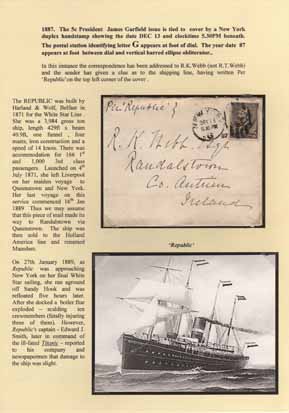 1887. The 5c President James Garfield issue is tied to cover by a New York
duplex handstamp showing the date DEC 13 and clocktime 5.30PM beneath.
The postal station identifying letter G appears at foot of dial. The year date 87
appears at foot between dial and vertical barred ellipse obliterator..
In this instance the correspondence has been addressed to R.K.Webb (not R.T.Webb)
and the sender has given a clue as to the shipping line, having written Per
'Republic' on the top left corner of the cover .
The REPUBLIC was built by
Harland & Wolf, Belfast in
1871 for the White Star Line .
She was a 3,984 gross ton
ship, length 429ft x beam
40.9ft, one funnel , four
masts, iron construction and a
speed of 14 knots. There was
accommodation for 166 1st
and 1,000 3rd class
passengers. Launched on 4th
July 1871, she left Liverpool
on her maiden voyage to
Queenstown and New York.
Her last voyage on this
service commenced 16th Jan
1889. Thus we may assume
that this piece of mail made its
way to Randalstown via
Queenstown. The ship was
then sold to the Holland
America line and renamed
Maasdam.
On 27th January 1889, as
Republic was approaching
New York on her final White
Star sailing, she ran aground
off Sandy Hook and was
refloated five hours later.
After she docked a boiler flue
exploded – scalding ten
crewmembers (fatally injuring
three of them). However,
Republic's captain - Edward J.
Smith, later in command of
the ill-fated Titanic – reported
to his company and
newspapermen that damage to
the ship was slight.
Per "Republic"
R. K. Webb, Esqr
Randalstown
Co. Antrim
Ireland
'Republic'